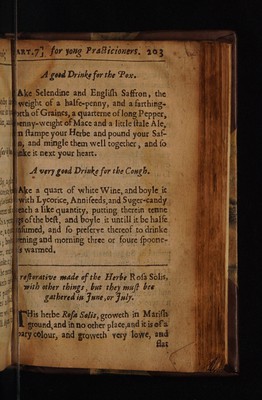 ART.7] for yong Practicioners. 203
A good Drinke for the Pox.
Ake Selendine and English Saffron, the
weight of a halfe-penny, and a farthing-
orth of Graines, a quarterne of long Pepper,
enny-weight of Mace and a little stale Ale,
n stampe your Herbe and pound your Saf-
n, and mingle them well together, and so
inke it next your heart.
A very good Drinke for the Cough.
Ake a quart of white Wine, and boyle it
with Lycorice, Anniseeds, and Suger-candy
each a like quantity, putting therein tenne
gs of the best, and boyle it untill it be halfe
sumed, and so preserve thereof to drinke
vening and morning three or foure spoone-
s warmed.
restorative made of the Herbe Rosa Solis,
with other things, but they must bee
gathered in June, or July.
THis herbe Rosa Solis, groweth in Marish
ground, and in no other place, and it is of a
oary colour, and groweth very lowe, and
flat